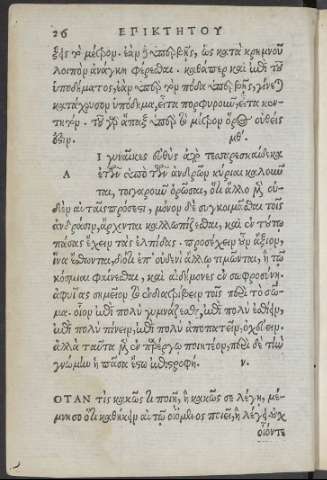 26 ΕΠΙΚΤΗΤΟΥ
ξῃς τὸ μέτρον. ἐὰν ὑπερβῇς, ὡς κατὰ κρημνοῦ
λοιπὸν ἀνάγκη φέρεσθαι. καθάπερ καὶ ἐπὶ τοῦ
ὑποδήματος, ἐὰν ὑπὲρ τὸν πόδα ὑπερβῇς, γίνεται
κατάχρυσον ὑπόδημα, εἶτα πορφυροῦν, εἶτα κεν-
τητόν. τοῦ γὰρ ἅπαξ ὑπὲρ τὸ μέτρον ὅρος οὐθείς
ἐστιν. μθʹ.
Αἱ γυναῖκες εὐθὺς ἀπὸ τεσσαρεσκαίδεκα
ἐτῶν ὑπὸ τῶν ἀνδρῶν κύριαι καλοῦν
ται, τοιγαροῦν ὁρῶσαι, ὅτι ἄλλο μὲν οὐ-
δὲν αὐταῖς πρόσεστι, μόνον δὲ συγκοιμᾶσθαι τοῖς
ἀνδράσιν, ἄρχονται καλλωπίζεσθαι, καὶ ἐν τούτῳ
πάσας ἔχειν τὰς ἐλπίδας. προσέχειν οὖν ἄξιον,
ἵνα αἴσθωνται, διότι ἐπ' οὐδενὶ ἄλλῳ τιμῶνται, ἢ τῷ
κόσμιαι φαίνεσθαι, καὶ αἰδήμονες ἐν σωφροσύνῃ.
ἀφυΐας σημεῖον τὸ ἐνδιατρίβειν τοῖς περὶ τὸ σῶ-
μα. οἷον ἐπὶ πολὺ γυμνάζεσθαι, ἐπὶ πολὺ ἐσθίειν,
ἐπὶ πολὺ πίνειν, ἐπὶ πολὺ ἀποπατεῖν, ὀχεύειν.
ἀλλὰ ταῦτα μὲν ἐν παρέργῳ ποιητέον, περὶ δὲ τὴν
γνώμην ἡ πᾶσα ἔστω ἐπιστροφή. ν.
ΟΤΑΝ τίς κακῶς σε ποιῇ, ἢ κακῶς σε λέγῃ, μέ-
μνησο ὅτι καθήκειν αὐτῷ οἰόμενος ποιεῖ, ἢ λέγει. οὐχ
οἷόντε